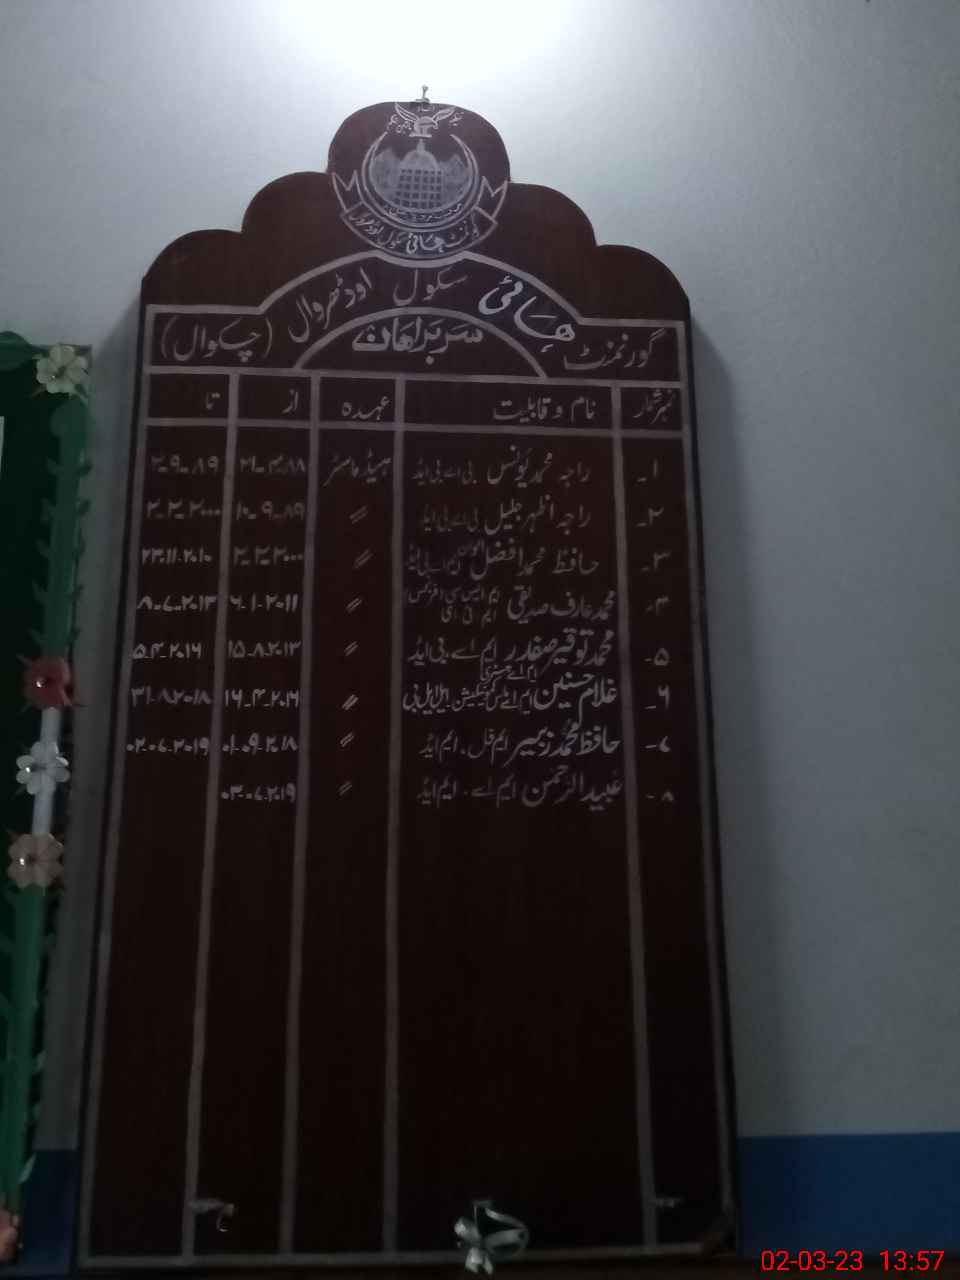 گورنمنٹ ہائی سکول اوڈھروال
گورنمنٹ ہائی سکول اوڈھروال (چکوال)
سربراہان
نمبر شمار نام و قابلیت عہدہ از تا
۱۔ راجہ محمد یونس بی اے بی ایڈ ہیڈ ماسٹر ۲۱-۳-۸۸ ۲-۹-۸۹
۲۔ راجہ اظہر جلیل بی اے بی ایڈ 〃 ۱۰-۹-۸۹ ۲-۲-۲۰۰۰
۳۔ حافظ محمد افضل بی ایڈ 〃 ۲-۲-۲۰۰۰ ۲۳-۱۱-۲۰۱۰
۴۔ محمد عارف صدیقی ایم ایس سی فزکس 〃 ۶-۱-۲۰۱۱ ۸-۷-۲۰۱۳
۵۔ محمد توقیر صفدر ایم اے۔ بی ایڈ 〃 ۱۵-۸-۲۰۱۳ ۵-۴-۲۰۱۶
۶۔ غلام حسنین ایل ایل بی 〃 ۱۶-۴-۲۰۱۶ ۳۱-۸-۲۰۱۸
۷۔ حافظ محمد زبیر ایم فل۔ ایم ایڈ 〃 ۰۱-۰۹-۲۰۱۸ ۰۲-۰۷-۲۰۱۹
۸۔ عبید الرحمن ایم اے۔ ایم ایڈ 〃 ۰۳-۰۷-۲۰۱۹
02-03-23 13:57